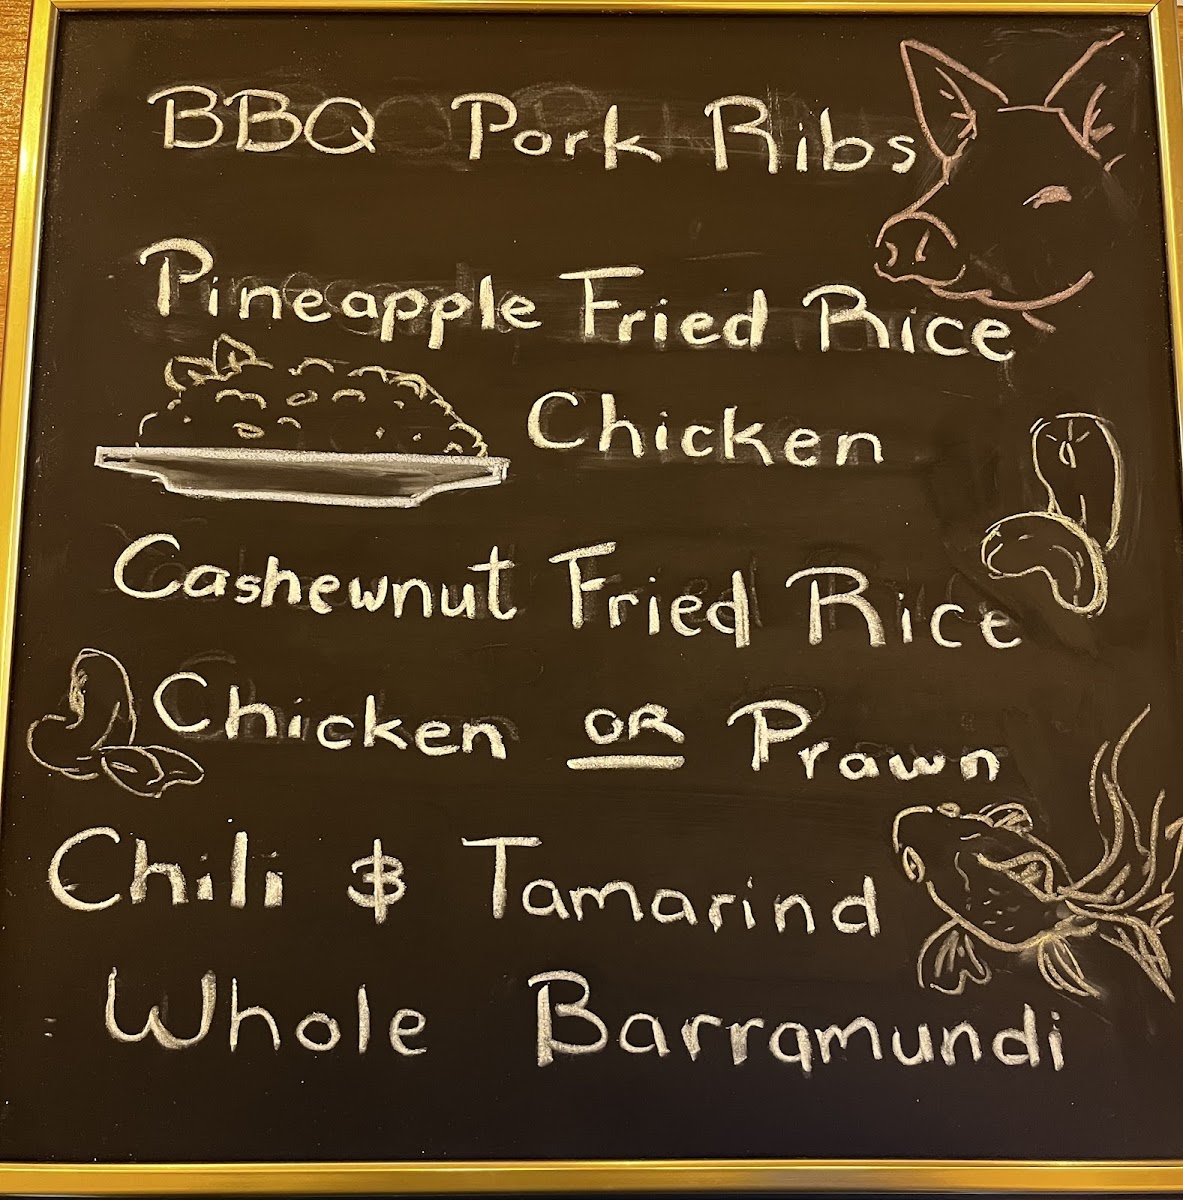 BBQ Pork Ribs
Pineapple Fried Rice
Chicken
Cashewnut Fried Rice
Chicken OR Prawn
Chili & Tamarind
Whole Barramundi